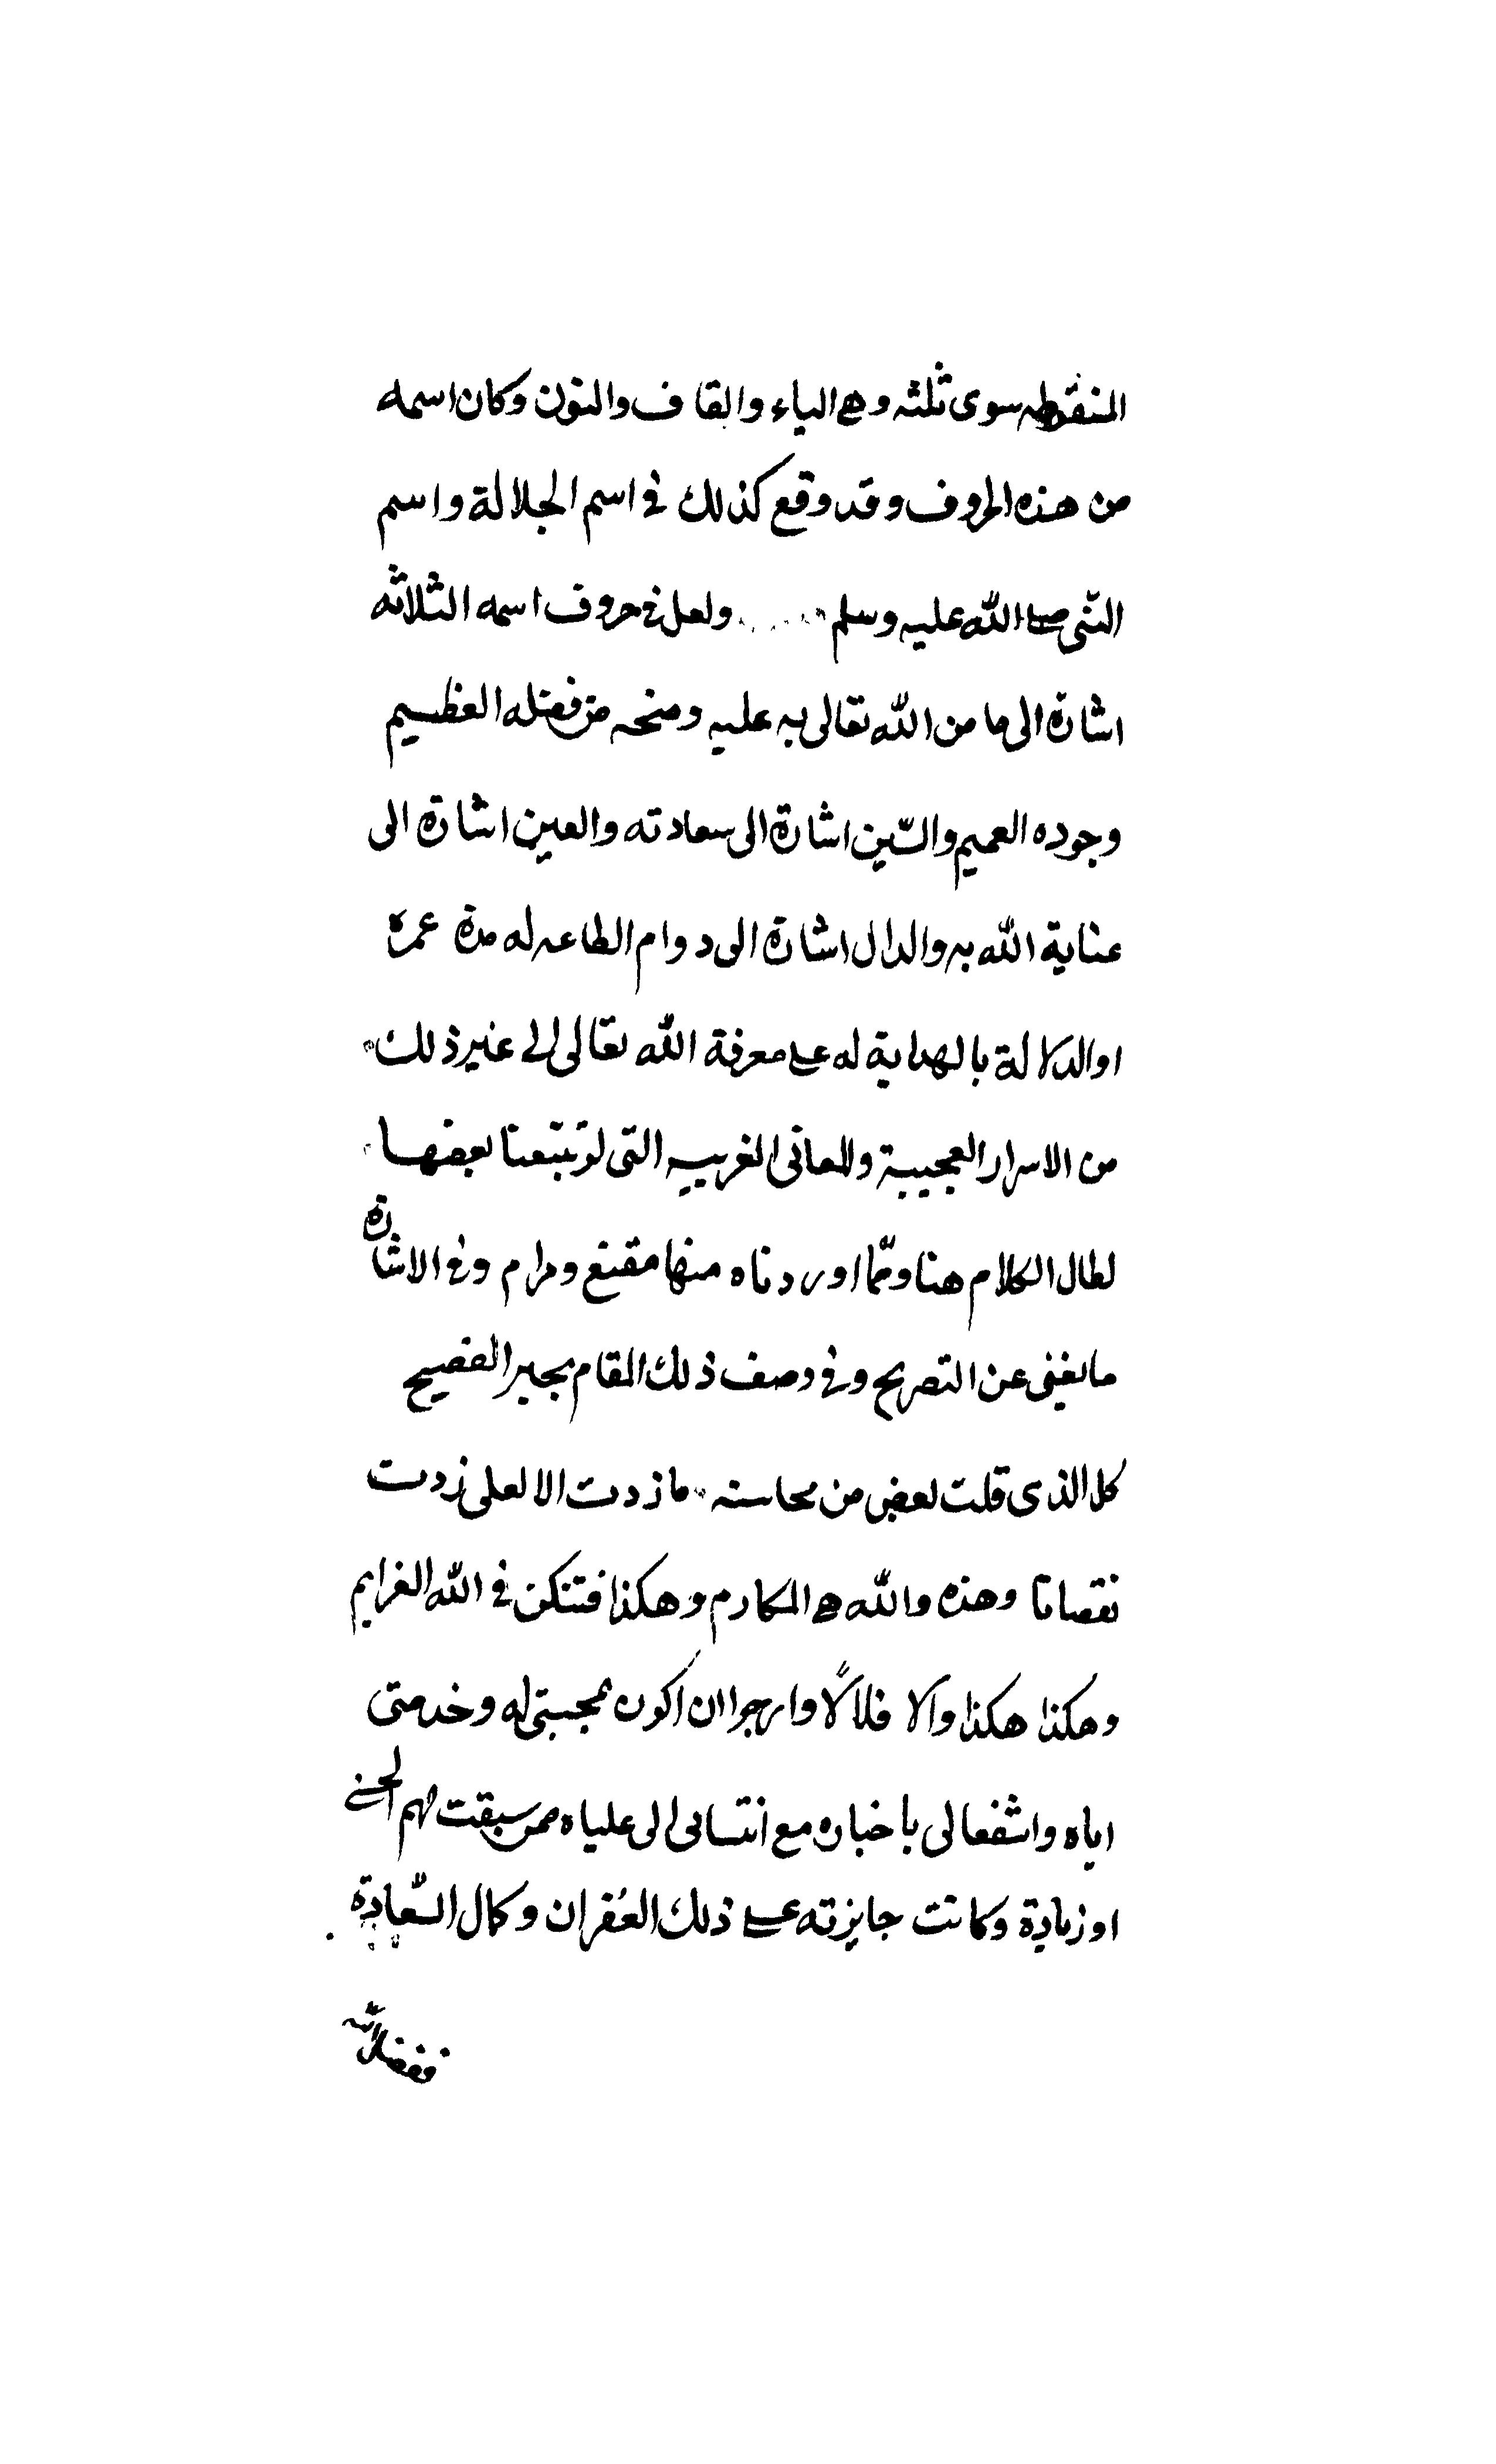 المنقطه سوى ثلثه وهي الياء والقاف والنون وكان اسمه
من هذه الحروف وقد وقع كذلك في اسم الجلالة واسم
النّبى صلى الله عليه وسلم ولعل في حروف اسمه الثلاثه
اشارة الى ما من الله تعالى به عليه ومنحه من فضله العظيم
وجوده العميم والسّين اشارة الى سعادته والعين اشارة الى
عناية الله به والدال اشارة الى دوام الطاعه له مدة عمره
او الدلالة بالهداية له على معرفة الله تعالى الى غير ذلك
من الاسرار العجيبة والمعانى الغريبه التى لو تتبعنا بعضها
لطال الكلام هنا وممّا اوردناه منها مقنع ومرام وفي الاشارة
ما يغنى عن التصريح وفي وصف ذلك المقام يجير الفصيح
كل الذى قلت بعض من محاسنه ما زدت الا لعلى زدت
نقصانا وهذه والله هي المكارم وهكذا فتكن في الله الغرايم
وهكذا هكذا والا فلا لا وارجوا ان اكون بمحبتى له وخدمتى
اياه واشفعالى باخباره مع انتسابى الى علياه ممن سبقت لهم الحسنى
او زيادة وكانت جايزته على ذلك الغفران وكمال السّعادة